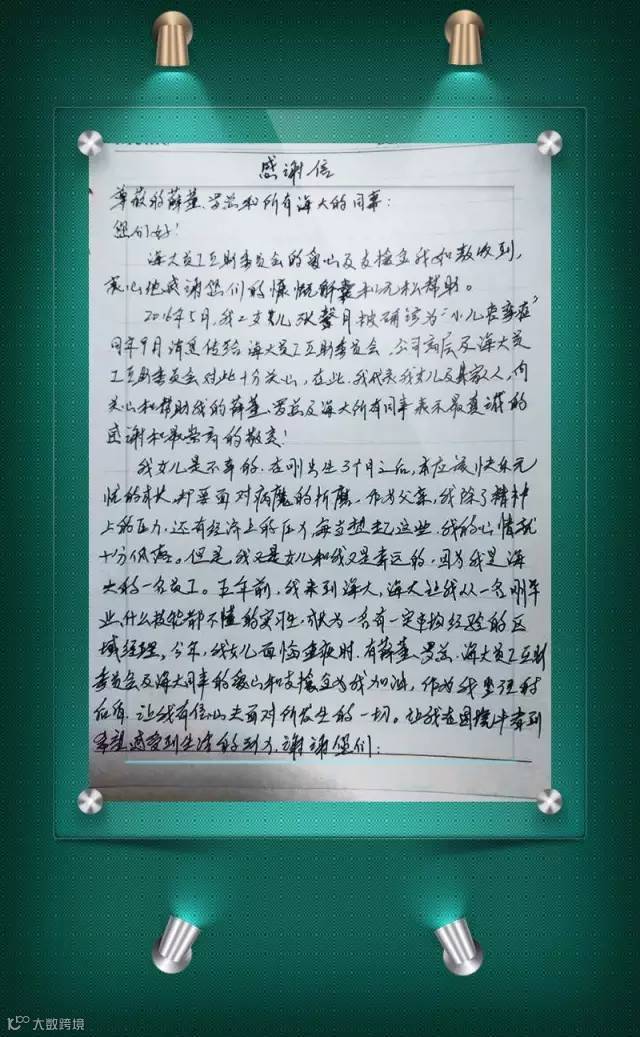 感谢信
尊敬的薛董、罗总和所有海大的同事：
您们好！
海大员工互助委员会的爱心及支援金我如数收到，
衷心地感谢您们的慷慨解囊和无私帮助。
2016年5月，我之女儿 馨月被确诊为“小儿 ”
同年9月消息传给海大员工互助委员会，公司高层及海大员
工互助委员会对此十分关心，在此，我代表我女儿及其家人，向
关心和帮助我的薛董、罗总及海大所有同事表示最真诚的
感谢和最崇高的敬意！
我女儿是不幸的，在刚出生3个月之后，本应该快乐无
忧的成长，却要面对病魔的折磨，作为父亲，我除了精神
上的压力，还有经济上的压力，每当想起这些，我的心情就
十分低落。但是，我又是女儿和我又是幸运的，因为我是海
大的一名员工。五年前，我来到海大，海大让我从一名刚毕
业，什么技能都不懂的实习生，成为一名有一定 经验的区
域经理。今年，我女儿面临重疾时，有薛董、罗总、海大员工互助
委员会及海大同事的爱心和支援金为我加油，作为我坚强的
后盾，让我有信心去面对所发生的一切。让我在困境中看到
希望，感受到生活的动力，谢谢您们！
大数跨境